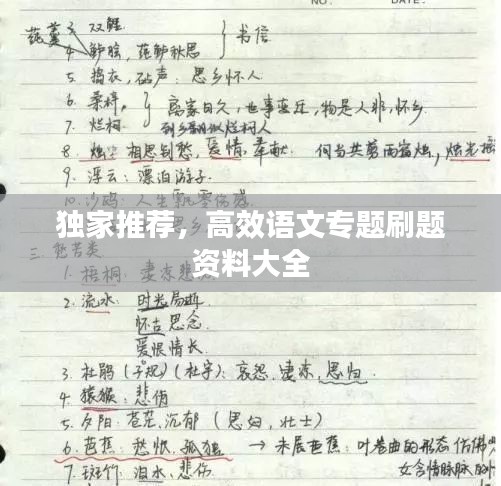 NO. DATE.
莼羹 3 双鲤
4 鲈脍，莼鲈秋思 } 书信
5. 捣衣，砧声：思乡怀人
6. 桑梓， } 离家日久，世事变迁，物是人非，怀乡
7. 烂柯 到乡翻似烂柯人
8. 烛：相思别愁，爱情，奉献 何当共剪西窗烛，烛光摇
9. 浮云：漂泊游子.
10. 沙鸥：人生飘零伤感
独家推荐，高效语文专题刷题
资料大全
三
1. 梧桐：凄凉悲
2. 流水： 时光易逝
怀古思念
爱恨情长
3. 杜鹃（子规）（杜宇）：哀怨，凄凉，思归.
4. 猿猴：悲伤
5. 夕阳：苍茫，沉郁（思妇，壮士）
6. 芭蕉：愁恨，孤独 → 未展芭蕉：叶卷曲的形态仿佛
7. 斑竹：泪水，悲伤 女含情脉脉